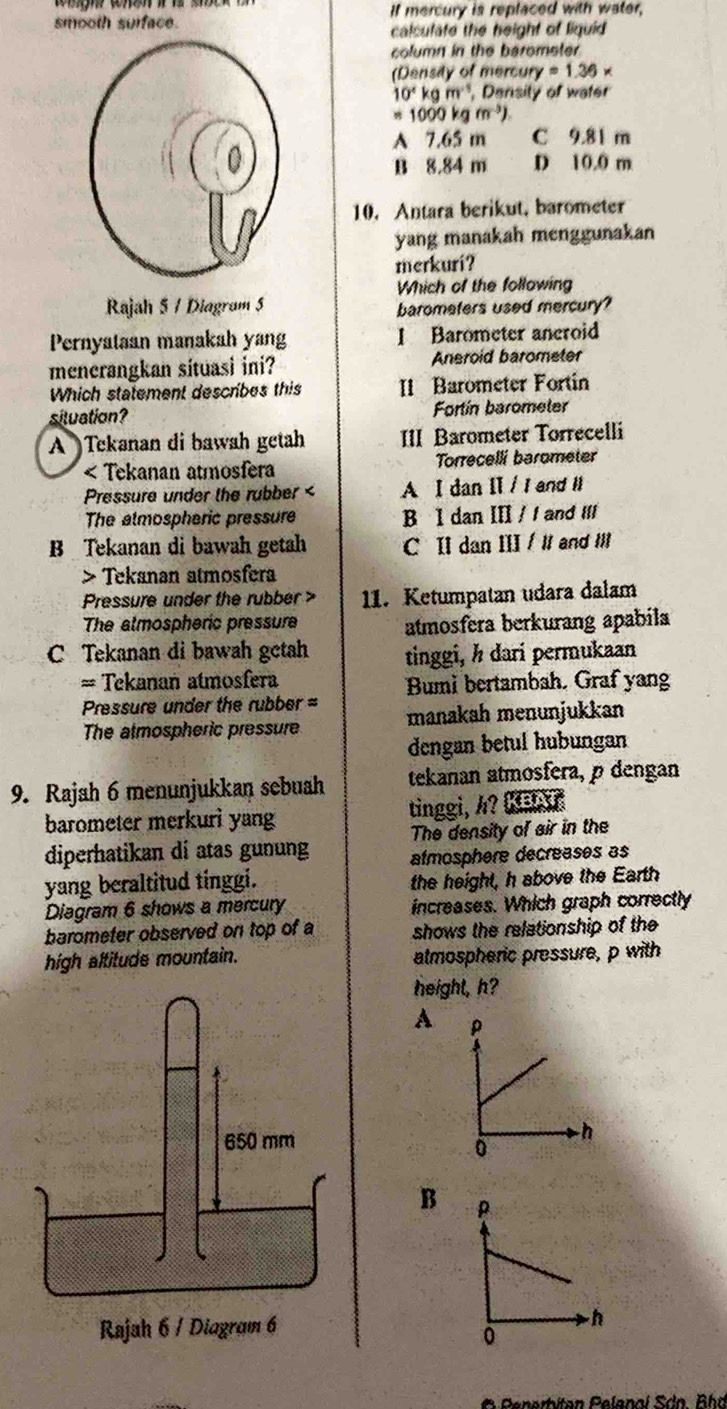 weight when it is stuck on
smooth surface.
Rajah 5 / Diagram 5
Pernyataan manakah yang
menerangkan situasi ini?
Which statement describes this
situation?
A Tekanan di bawah getah
< Tekanan atmosfera
Pressure under the rubber <
The atmospheric pressure
B Tekanan di bawah getah
> Tekanan atmosfera
Pressure under the rubber >
The atmospheric pressure
C Tekanan di bawah getah
= Tekanan atmosfera
Pressure under the rubber =
The atmospheric pressure
9. Rajah 6 menunjukkan sebuah
barometer merkuri yang
diperhatikan di atas gunung
yang beraltitud tinggi.
Diagram 6 shows a mercury
barometer observed on top of a
high altitude mountain.
650 mm
Rajah 6 / Diagram 6
If mercury is replaced with water,
calculate the height of liquid
column in the barometer
(Density of mercury = 1.36 ×
10⁴ kg m⁻³, Density of water
= 1000 kg m⁻³).
A 7.65 m C 9.81 m
B 8.84 m D 10.0 m
10. Antara berikut, barometer
yang manakah menggunakan
merkuri?
Which of the following
barometers used mercury?
I Barometer aneroid
Aneroid barometer
II Barometer Fortin
Fortin barometer
III Barometer Torrecelli
Torrecelli barometer
A I dan II / I and II
B I dan III / I and III
C II dan III / II and III
11. Ketumpatan udara dalam
atmosfera berkurang apabila
tinggi, h dari permukaan
Bumi bertambah. Graf yang
manakah menunjukkan
dengan betul hubungan
tekanan atmosfera, p dengan
tinggi, h? KBAT
The density of air in the
atmosphere decreases as
the height, h above the Earth
increases. Which graph correctly
shows the relationship of the
atmospheric pressure, p with
height, h?
A
p
h
0
B
p
h
0
© Penerbitan Pelangi Sdn. Bhd